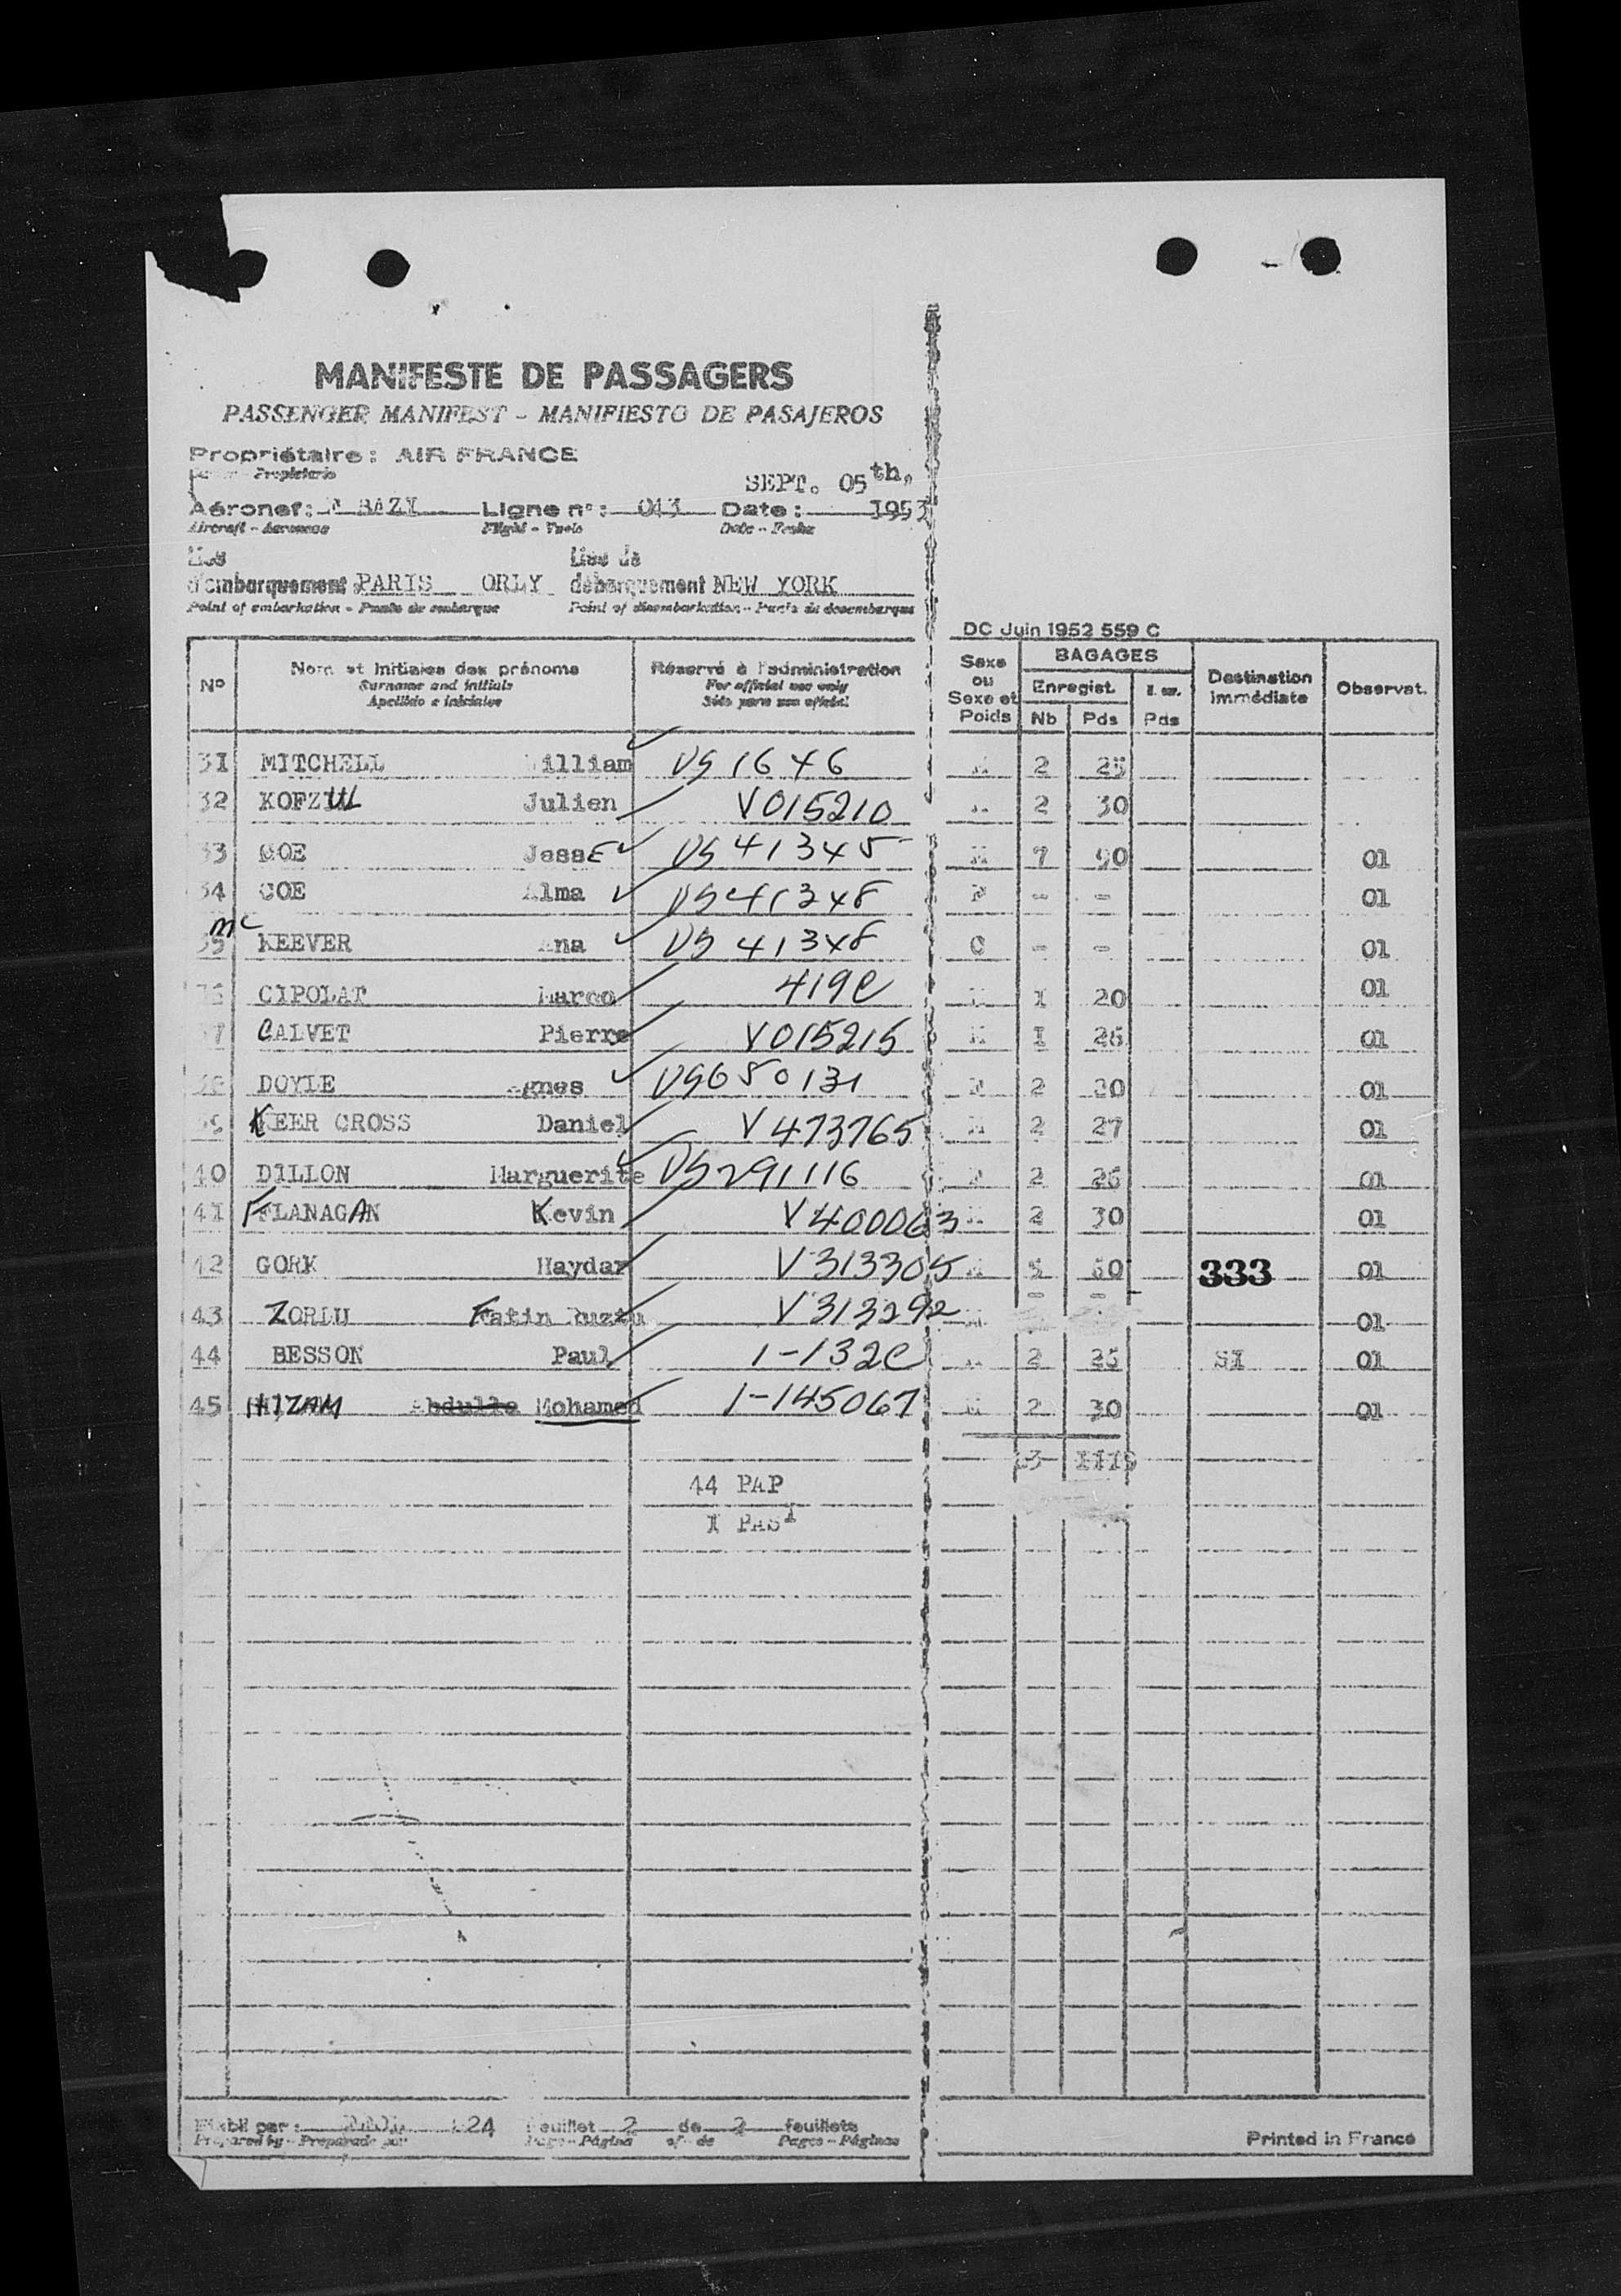 MANIFESTE DE PASSAGERS
PASSENGER MANIFEST - MANIFIESTO DE PASAJEROS
Propriétaire : AIR FRANCE
Propietario
SEPT. 05th,
Aéronef : BAZY Ligne n° : 043 Date : 1953
Aircraft - Aeronave Flight - Vuelo Date - Fecha
Lieu Lieu de
d'embarquement PARIS ORLY débarquement NEW YORK
Point of embarkation - Punto de embarque Point of disembarkation - Punto de desembarque
DC Juin 1952 559 C
N° Nom et initiales des prénoms Réservé à l'administration Sexe ou Sexe et Poids BAGAGES Destination immédiate Observat.
Surname and initials For official use only Enregist.
Apellido e iniciales Sólo para uso oficial Nb Pds Pds
31 MITCHELL William US 1646 M 2 25
32 KOFZUL Julien V015210 M 2 30
33 Jesse US 41345 M 7 90 01
34 COE Alma US 41348 F - - 01
35 Mc KEEVER Ana US 41348 - - 01
36 CIPOLAT Marco 419C M I 20 01
37 CALVET Pierre V015215 M I 01
38 DOYLE Agnes US 650131 F 2 30 01
39 KEER CROSS Daniel V473765 M 2 27 01
40 DILLON Marguerite US 291116 F 2 01
41 FLANAGAN Kevin V400063 M 2 30 01
42 GORK Haydar V313305 M 333 01
- -
43 ZORLU Fatin V313292 M 01
44 BESSON Paul 1-132C M 2 SI 01
45 HIZAM Abdulla Mohamed 1-145067 M 2 30 01
44 PAP
I PAS
Etabli par : 24 Feuillet 2 de 2 feuillets
Prepared by - Preparado por Page - Página of - de Pages - Páginas
Printed in France